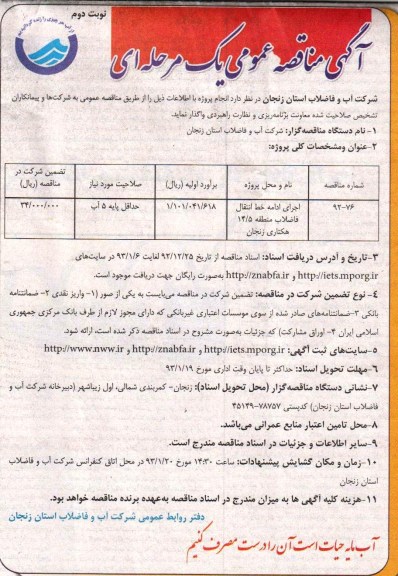 نوبت دوم
آگهی مناقصه عمومی یک مرحله‌ای
شرکت آب و فاضلاب استان زنجان در نظر دارد انجام پروژه با اطلاعات ذیل را از طریق مناقصه عمومی به شرکت‌ها و پیمانکاران
تشخیص صلاحیت شده معاونت برنامه‌ریزی و نظارت راهبردی واگذار نماید.
۱- نام دستگاه مناقصه‌گزار: شرکت آب و فاضلاب استان زنجان
۲-عنوان ومشخصات کلی پروژه:
شماره مناقصه	نام و محل پروژه	برآورد اولیه (ریال)	صلاحیت مورد نیاز	تضمین شرکت در مناقصه (ریال)
۹۲-۷۶	اجرای ادامه خط انتقال فاضلاب منطقه ۱۴/۵ هکتاری زنجان	۱/۱۰۱/۰۴۱/۶۱۸	حداقل پایه ۵ آب	۳۴/۰۰۰/۰۰۰
۳-تاریخ و آدرس دریافت اسناد: اسناد مناقصه از تاریخ ۹۲/۱۲/۲۵ لغایت ۹۳/۱/۶ در سایت‌های
http://iets.mporg.ir و http://znabfa.ir به‌صورت رایگان جهت دریافت موجود است.
۴- نوع تضمین شرکت در مناقصه: تضمین شرکت در مناقصه می‌بایست به یکی از صور (۱- واریز نقدی ۲- ضمانتنامه
بانکی ۳-ضمانتنامه‌های صادر شده از سوی موسسات اعتباری غیربانکی که دارای مجوز لازم از طرف بانک مرکزی جمهوری
اسلامی ایران ۴- اوراق مشارکت) که جزئیات به‌صورت مشروح در اسناد مناقصه ذکر شده است، ارائه شود.
۵-سایت‌های ثبت آگهی: http://iets.mporg.ir و http://znabfa.ir و http://www.nww.ir
۶-مهلت تحویل اسناد: حداکثر تا پایان وقت اداری مورخ ۹۳/۱/۱۹
۷-نشانی دستگاه مناقصه‌گزار (محل تحویل اسناد): زنجان- کمربندی شمالی، اول زیباشهر (دبیرخانه شرکت آب و
فاضلاب استان زنجان) کدپستی ۷۸۷۵۷-۴۵۱۴۹
۸-محل تامین اعتبار منابع عمرانی می‌باشد.
۹-سایر اطلاعات و جزئیات در اسناد مناقصه مندرج است.
۱۰-زمان و مکان گشایش پیشنهادات: ساعت ۱۴:۳۰ مورخ ۹۳/۱/۲۰ در محل اتاق کنفرانس شرکت آب و فاضلاب
استان زنجان
۱۱-هزینه کلیه آگهی ها به میزان مندرج در اسناد مناقصه به‌عهده برنده مناقصه خواهد بود.
دفتر روابط عمومی شرکت آب و فاضلاب استان زنجان
آب مایه حیات است آن را درست مصرف کنیم